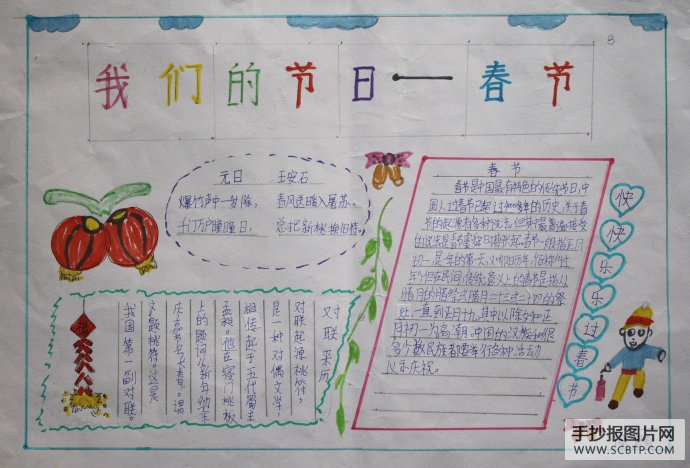 我们的节日——春节
8
元日 王安石
爆竹声中一岁除,
春风送暖入屠苏。
千门万户曈曈日,
总把新桃换旧符。
春节
春节是中国最有特色的传统节日,中
国人过春节已超过4000多年的历史,关于春
节的起源有多种说法,但其中最普遍接受
的说法是春节由虞舜时期兴起。春节一般指正月
初一,是年的第一天,又叫阴历年,俗称"过
年"。但在民间,传统意义上的春节是指从
腊月的腊祭或腊月二十三或二十四的祭
灶,一直到正月十九,其中以除夕和正
月初一为高潮,中国的汉族和很
多少数民族都要举行各种活动
以示庆祝。
快
快
乐
乐
过
春
节
对联来历
对联起源桃符,
是一种对偶文学,
相传起于五代蜀主
孟昶。他在寝门桃板
上的题词"新年纳余
庆,嘉节号长春"。谓
文题桃符。这是
我国第一副对联。
福
手抄报图片网
WWW.SCBTP.COM